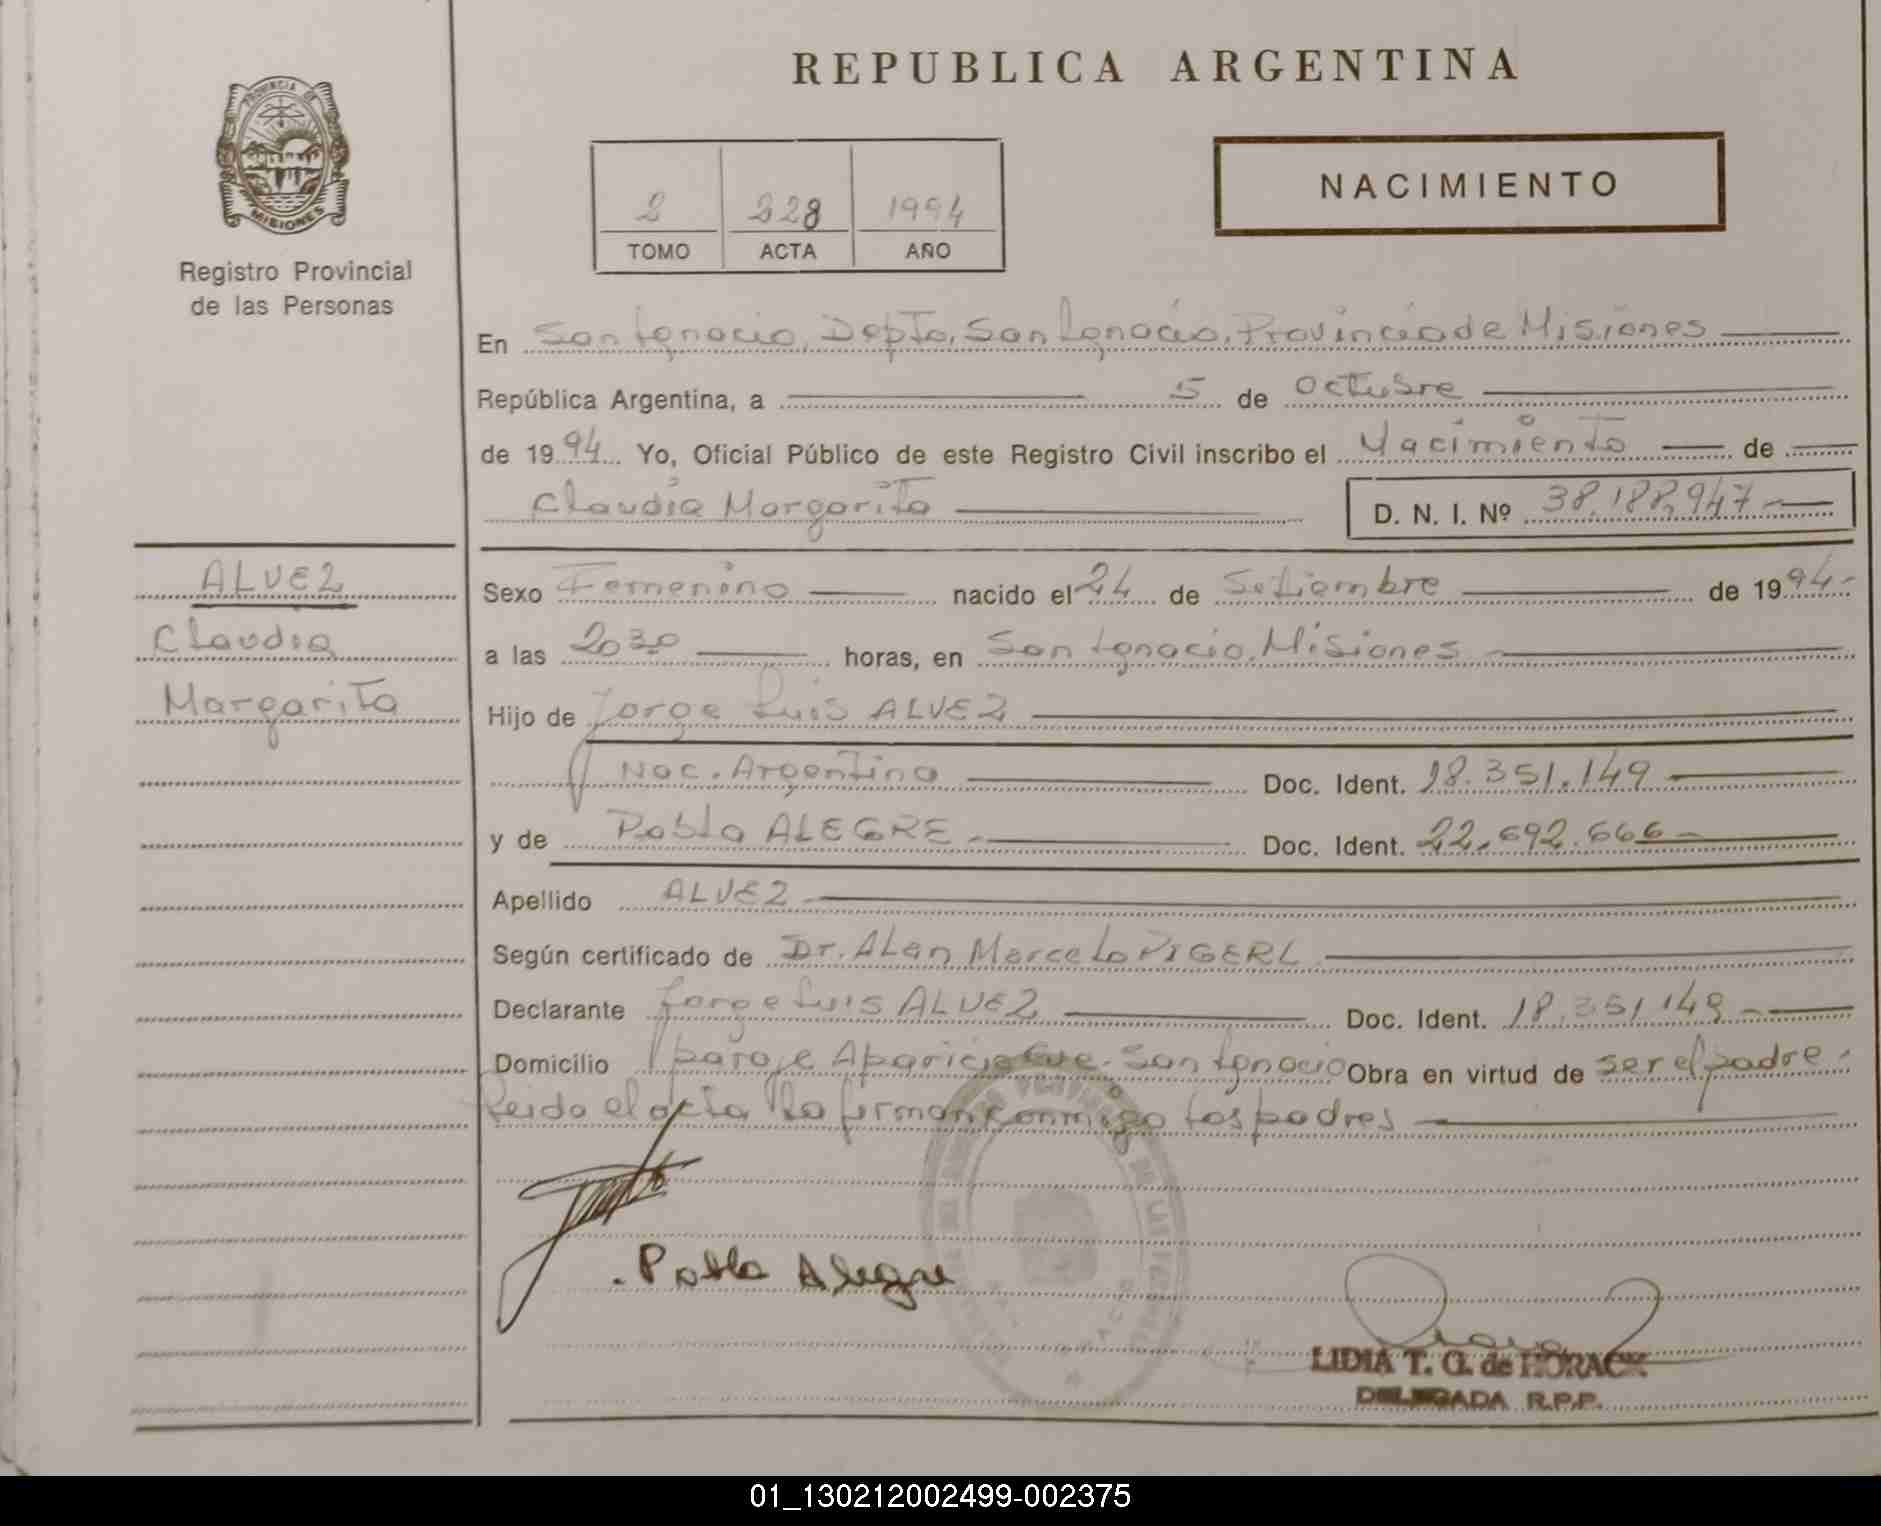 REPUBLICA ARGENTINA
PROVINCIA DE
MISIONES
Registro Provincial
de las Personas
2 228 1994
TOMO ACTA AÑO
NACIMIENTO
En San Ignacio, Depto, San Ignacio, Provincia de Misiones
República Argentina, a 5 de Octubre
de 1994 Yo, Oficial Público de este Registro Civil inscribo el Nacimiento de
Claudia Margarita D. N. I. Nº 38.188.947.-
ALVEZ
Claudia
Margarita
Sexo Femenino nacido el 24 de Setiembre de 1994.-
a las 20 30 horas, en San Ignacio, Misiones
Hijo de Jorge Luis ALVEZ
Nac. Argentina Doc. Ident. 18.351.149
y de Pabla ALEGRE.- Doc. Ident. 22.692.666.-
Apellido ALVEZ
Según certificado de Dr. Alan Marcelo PIGERL
Declarante Jorge Luis ALVEZ Doc. Ident. 18.351.149.-
Domicilio paraje Aparicio Cue - San Ignacio Obra en virtud de ser el padre.-
Leida el acta la firman conmigo los padres
Pabla Alegre
LIDIA T. G. de HORACK
DELEGADA R.P.P.
01_130212002499-002375